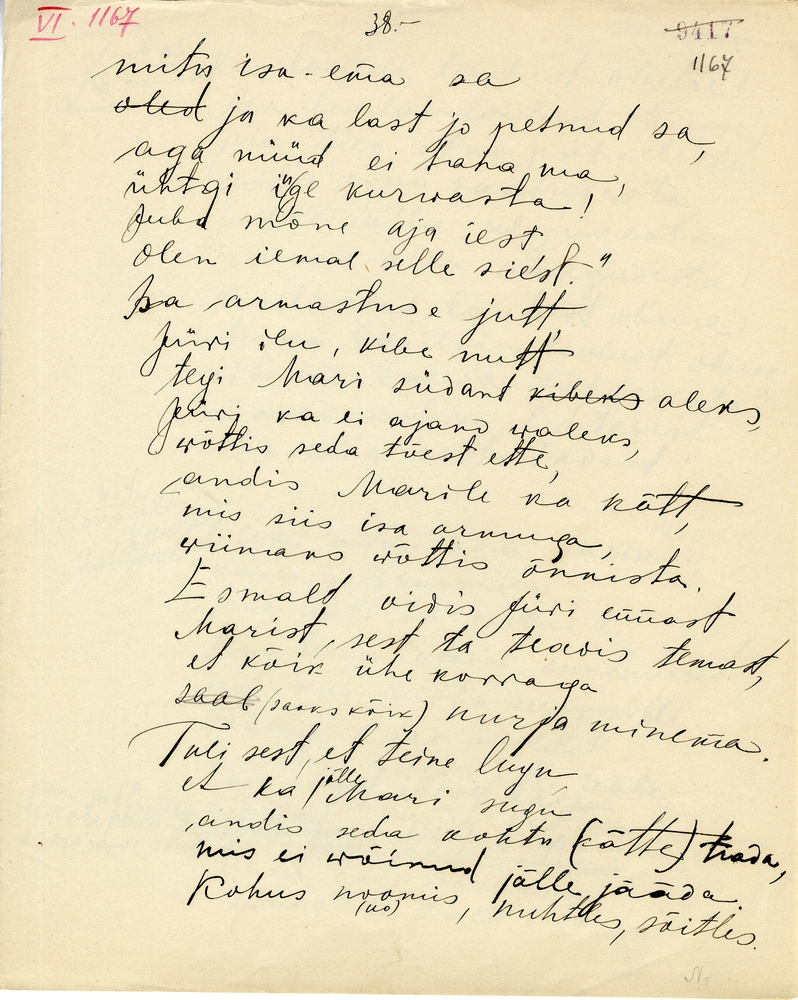 VI. 1167
38.-
9417
1167
mitu isa-ema sa
oled ja ka last jo petnud sa,
aga nüüd ei taha ma,
ühtgi iẽge kurwasta!
Juba mõne aja iest
olen iemal selle siest."
Isa armastuse jutt,
Jüri ilu, kibe nutt
tegi Mari südant kibeks aleks,
Jüri ka ei ajand waleks,
wõttis seda tõest ette,
andis Marile ka kätt,
mis siis isa armuga,
wiimaks wõttis õnnista.
Esmalt oidis Jüri ennast
Marist, sest ta teadis temast,
et kõik ühe korraga
saab (saaks kõik) nurja minema.
Tuli sest, et teine lugu,
et ka jälle Mari sugu
andis seda kohtu (kätte) teada,
mis ei wõinud jälle jääda.
Kohus noomis, nuhtles, sõitles.
(uo)